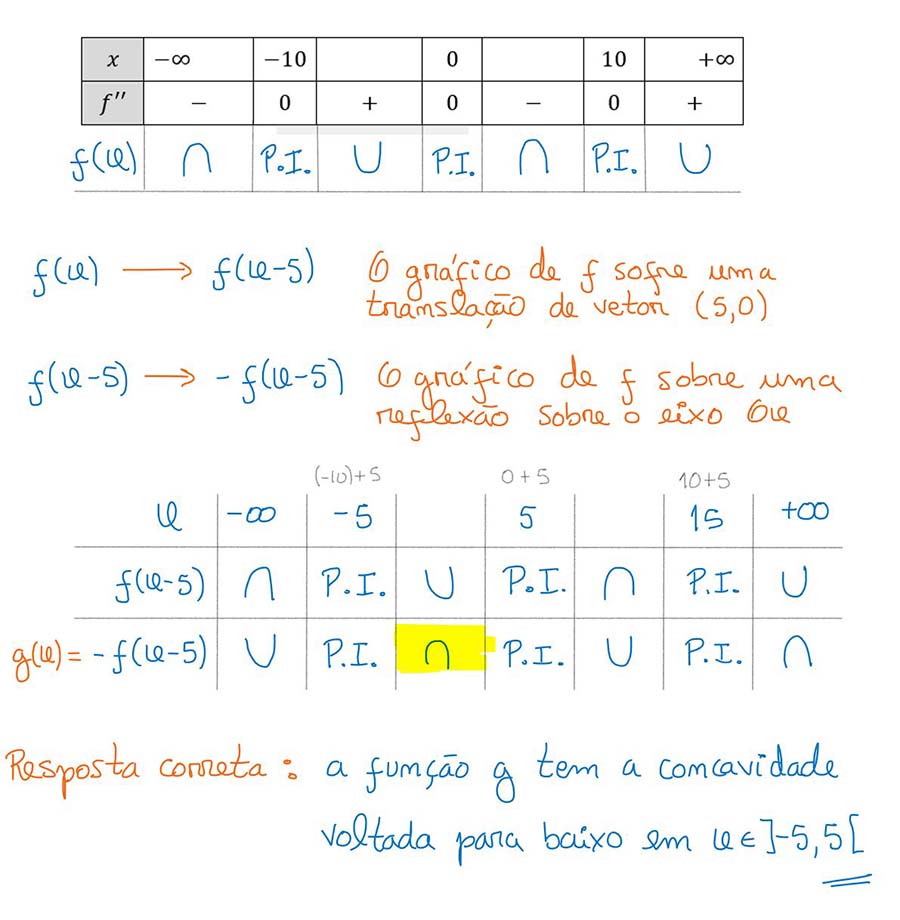 x −∞ −10 0 10 +∞
f'' − 0 + 0 − 0 +
f(x) ∩ P.I. ∪ P.I. ∩ P.I. ∪
f(x) → f(x-5) O gráfico de f sofre uma
translação de vetor (5,0)
f(x-5) → -f(x-5) O gráfico de f sobre uma
reflexão sobre o eixo Ox
(-10)+5 0+5 10+5
x -∞ -5 5 15 +∞
f(x-5) ∩ P.I. ∪ P.I. ∩ P.I. ∪
g(x) = -f(x-5) ∪ P.I. ∩ P.I. ∪ P.I. ∩
Resposta correta: a função g tem a concavidade
voltada para baixo em x∈]-5,5[